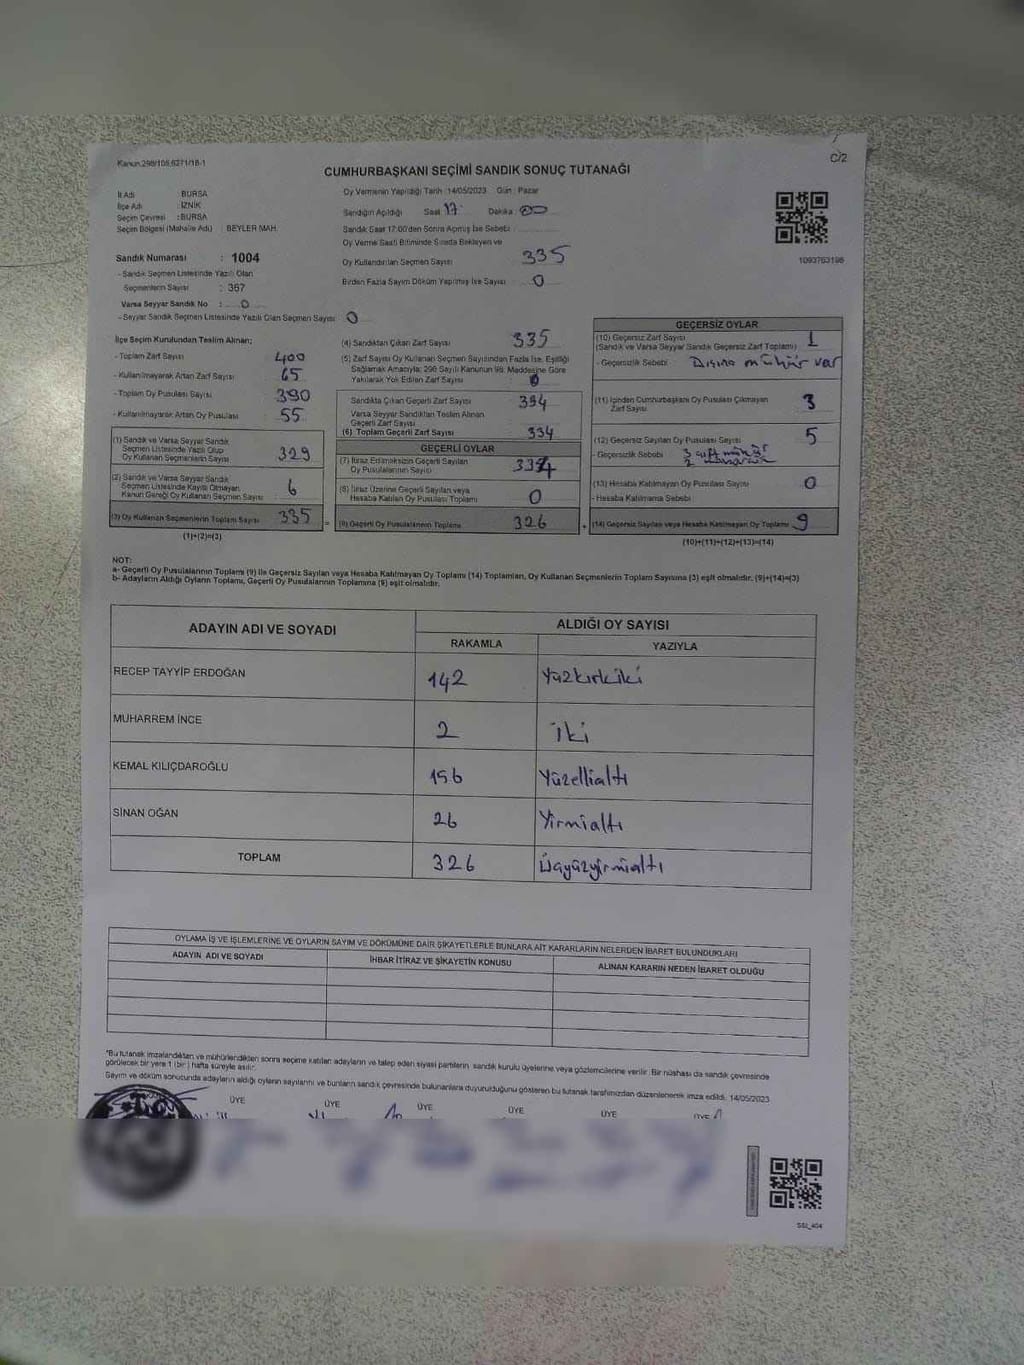 Kanun 298/105,6271/18-1
C/2
CUMHURBAŞKANI SEÇİMİ SANDIK SONUÇ TUTANAĞI
İl Adı : BURSA
İlçe Adı : İZNİK
Seçim Çevresi : BURSA
Seçim Bölgesi (Mahalle Adı) : BEYLER MAH.
Sandık Numarası : 1004
- Sandık Seçmen Listesinde Yazılı Olan
Seçmenlerin Sayısı : 367
Varsa Seyyar Sandık No : 0
- Seyyar Sandık Seçmen Listesinde Yazılı Olan Seçmen Sayısı : 0
Oy Vermenin Yapıldığı Tarih : 14/05/2023 Gün : Pazar
Sandığın Açıldığı Saat 17 Dakika : 00
Sandık Saat 17:00'den Sonra Açılmış İse Sebebi :
Oy Verme Saati Bitiminde Sırada Bekleyen ve
Oy Kullandırılan Seçmen Sayısı 335
Birden Fazla Sayım Döküm Yapılmış İse Sayısı 0
1093763196
İlçe Seçim Kurulundan Teslim Alınan;
- Toplam Zarf Sayısı : 400
- Kullanılmayarak Artan Zarf Sayısı : 65
- Toplam Oy Pusulası Sayısı : 390
- Kullanılmayarak Artan Oy Pusulası : 55
(1) Sandık ve Varsa Seyyar Sandık
Seçmen Listesinde Yazılı Olup
Oy Kullanan Seçmenlerin Sayısı : 329
(2) Sandık ve Varsa Seyyar Sandık
Seçmen Listesinde Kayıtlı Olmayan
Kanun Gereği Oy Kullanan Seçmen Sayısı : 6
(3) Oy Kullanan Seçmenlerin Toplam Sayısı : 335
(1)+(2)=(3)
(4) Sandıktan Çıkan Zarf Sayısı : 335
(5) Zarf Sayısı Oy Kullanan Seçmen Sayısından Fazla İse, Eşitliği
Sağlamak Amacıyla; 298 Sayılı Kanunun 98. Maddesine Göre
Yakılarak Yok Edilen Zarf Sayısı : 0
Sandıkta Çıkan Geçerli Zarf Sayısı : 334
Varsa Seyyar Sandıktan Teslim Alınan
Geçerli Zarf Sayısı :
(6) Toplam Geçerli Zarf Sayısı : 334
GEÇERLİ OYLAR
(7) İtiraz Edilmeksizin Geçerli Sayılan
Oy Pusulalarının Sayısı : 334
(8) İtiraz Üzerine Geçerli Sayılan veya
Hesaba Katılan Oy Pusulası Toplamı : 0
(9) Geçerli Oy Pusulalarının Toplamı : 326
GEÇERSİZ OYLAR
(10) Geçersiz Zarf Sayısı
(Sandık ve Varsa Seyyar Sandık Geçersiz Zarf Toplamı) : 1
- Geçersizlik Sebebi : Dışına mühür var
(11) İçinden Cumhurbaşkanı Oy Pusulası Çıkmayan
Zarf Sayısı : 3
(12) Geçersiz Sayılan Oy Pusulası Sayısı : 5
- Geçersizlik Sebebi : 3 çift mühür
(13) Hesaba Katılmayan Oy Pusulası Sayısı : 0
- Hesaba Katılmama Sebebi :
(14) Geçersiz Sayılan veya Hesaba Katılmayan Oy Toplamı : 9
(10)+(11)+(12)+(13)=(14)
NOT:
a- Geçerli Oy Pusulalarının Toplamı (9) ile Geçersiz Sayılan veya Hesaba Katılmayan Oy Toplamı (14) Toplamları, Oy Kullanan Seçmenlerin Toplam Sayısına (3) eşit olmalıdır. (9)+(14)=(3)
b- Adayların Aldığı Oyların Toplamı, Geçerli Oy Pusulalarının Toplamına (9) eşit olmalıdır.
ADAYIN ADI VE SOYADI
ALDIĞI OY SAYISI
RAKAMLA YAZIYLA
RECEP TAYYİP ERDOĞAN 142 Yüzkırkiki
MUHARREM İNCE 2 iki
KEMAL KILIÇDAROĞLU 156 Yüzellialtı
SİNAN OĞAN 26 Yirmialtı
TOPLAM 326 Üçyüzyirmialtı
OYLAMA İŞ VE İŞLEMLERİNE VE OYLARIN SAYIM VE DÖKÜMÜNE DAİR ŞİKAYETLERLE BUNLARA AİT KARARLARIN NELERDEN İBARET BULUNDUKLARI
ADAYIN ADI VE SOYADI İHBAR İTİRAZ VE ŞİKAYETİN KONUSU ALINAN KARARIN NEDEN İBARET OLDUĞU
"Bu tutanak imzalandıktan ve mühürlendikten sonra seçime katılan adayların ve talep eden siyasi partilerin sandık kurulu üyelerine veya gözlemcilerine verilir. Bir nüshası da sandık çevresinde
görülecek bir yere 1 (bir) hafta süreyle asılır.
Sayım ve döküm sonucunda adayların aldığı oyların sayılarını ve bunların sandık çevresinde bulunanlara duyurulduğunu gösteren bu tutanak tarafımızdan düzenlenerek imza edildi. 14/05/2023
ÜYE ÜYE ÜYE ÜYE ÜYE ÜYE
SSI_404